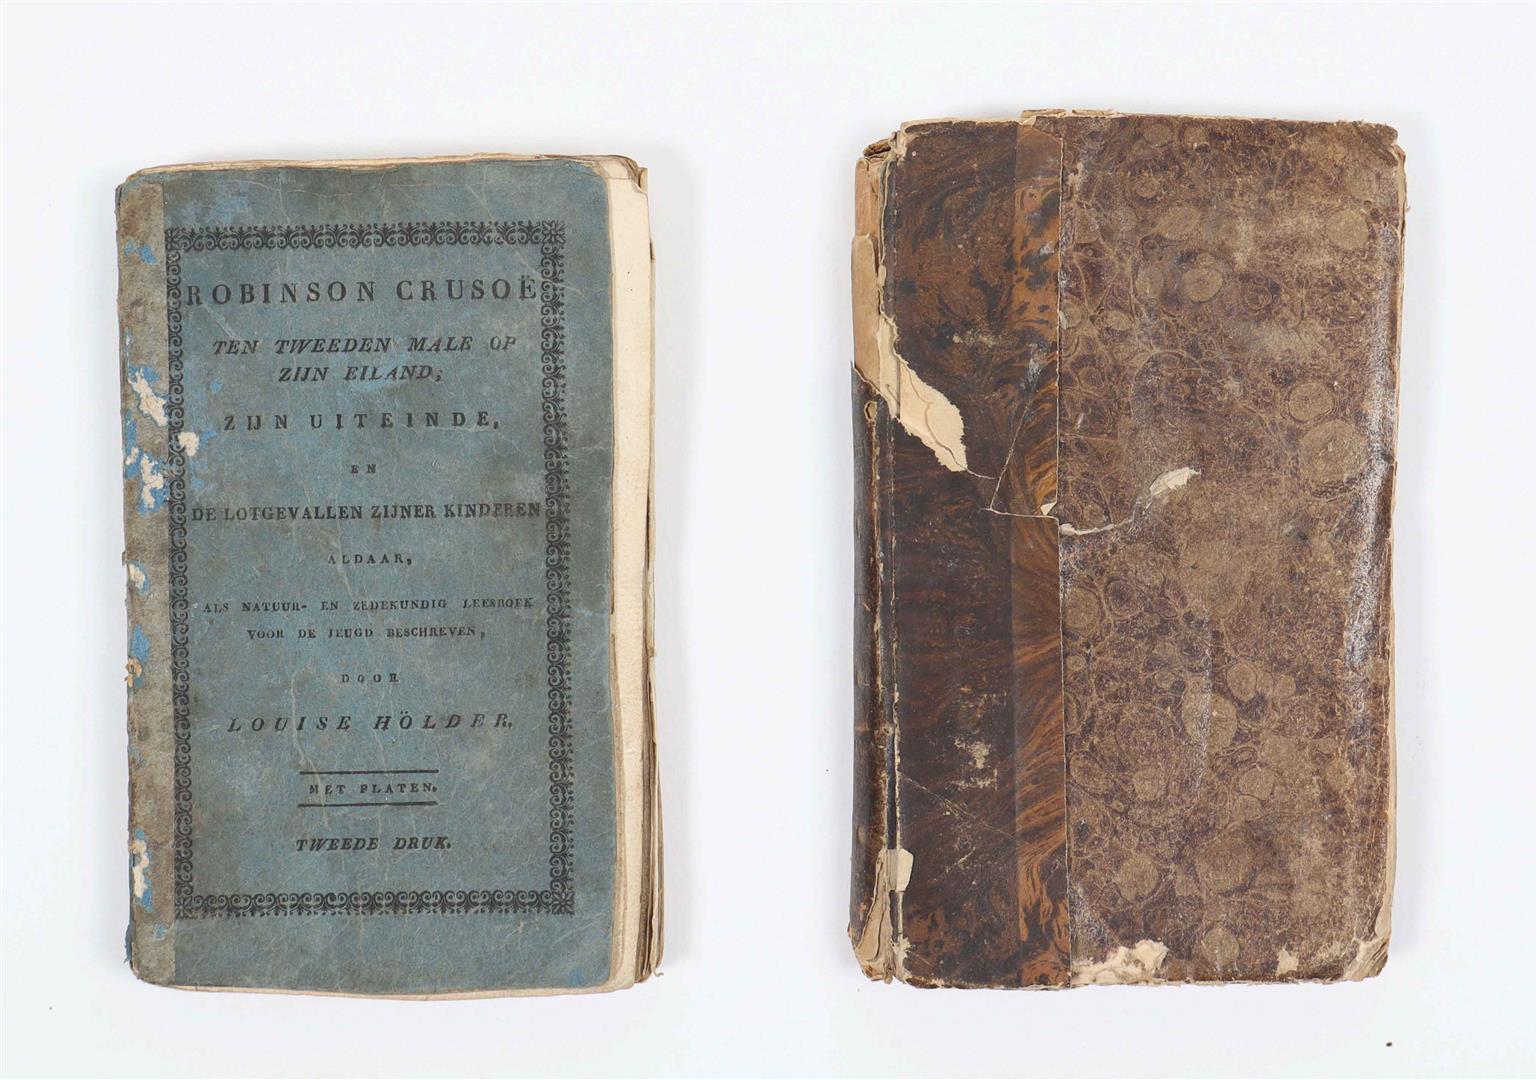 ROBINSON CRUSOË
TEN TWEEDEN MALE OP
ZIJN EILAND;
ZIJN UITEINDE,
EN
DE LOTGEVALLEN ZIJNER KINDEREN
ALDAAR,
ALS NATUUR- EN ZEDEKUNDIG LEESBOEK
VOOR DE JEUGD BESCHREVEN,
DOOR
LOUISE HÖLDER.
MET PLATEN.
TWEEDE DRUK.